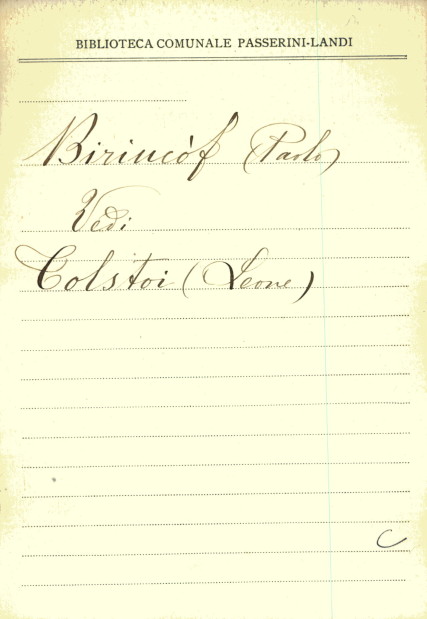 BIBLIOTECA COMUNALE PASSERINI-LANDI
Biriucòf (Paolo)
Vedi
Tolstoi (Leone)
C